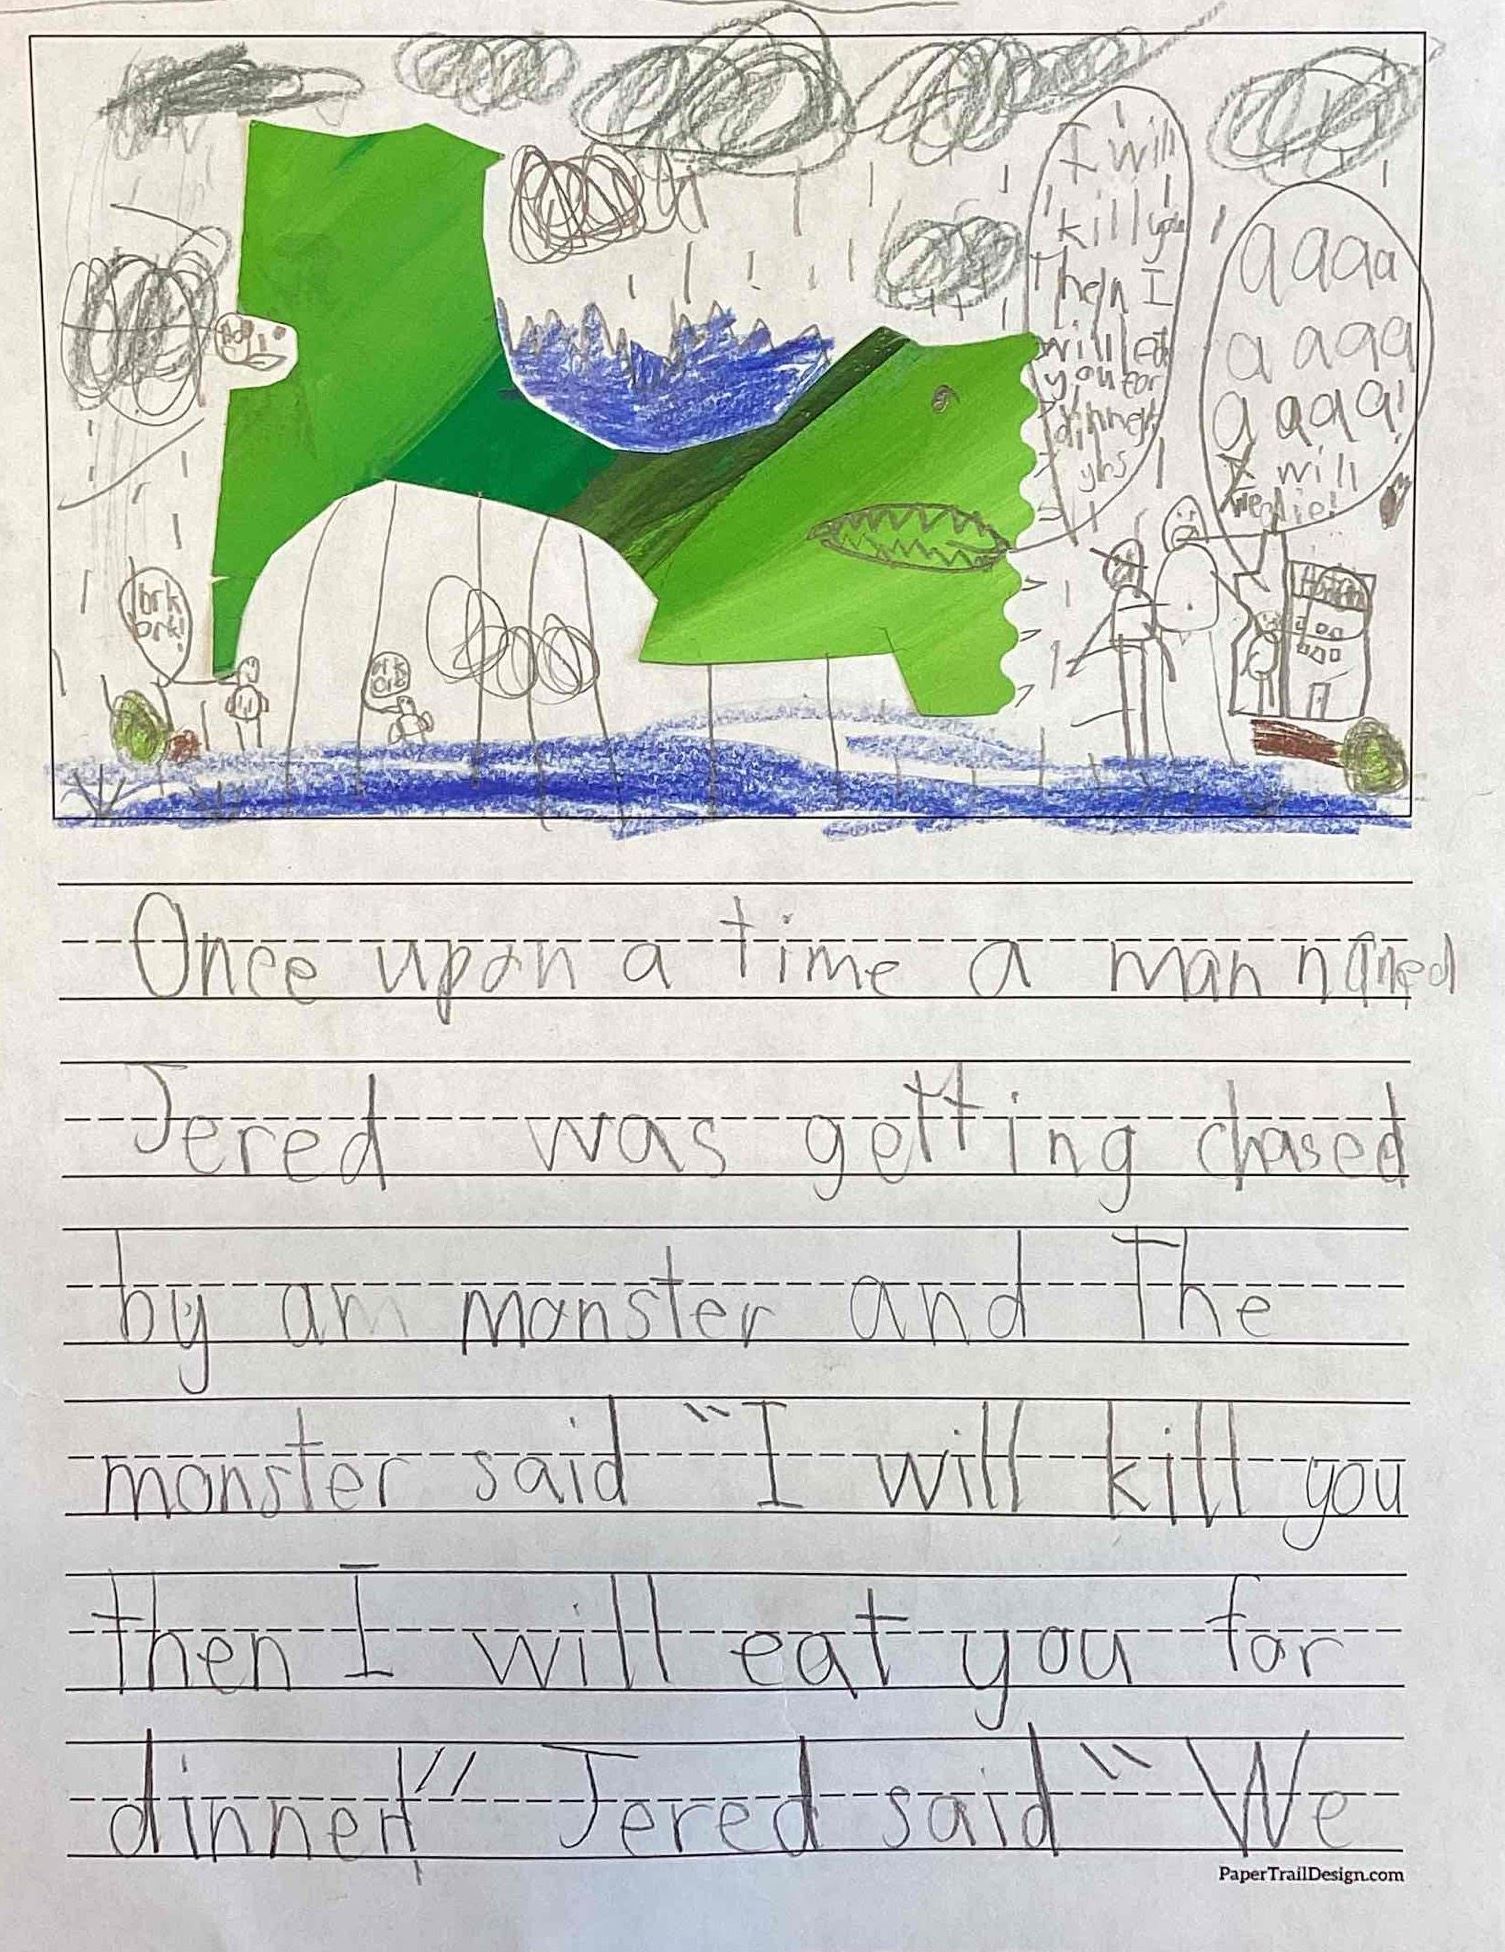 I will
kill you
Then I
will eat
you for
dinner
aaaa
aaaa
aaaa!
will
die!
brk
brk!
Once upon a time a man named
Jered was getting chased
by am monster and the
monster said "I will kill you
then I will eat you for
dinner!" Jered said "We
PaperTrailDesign.com